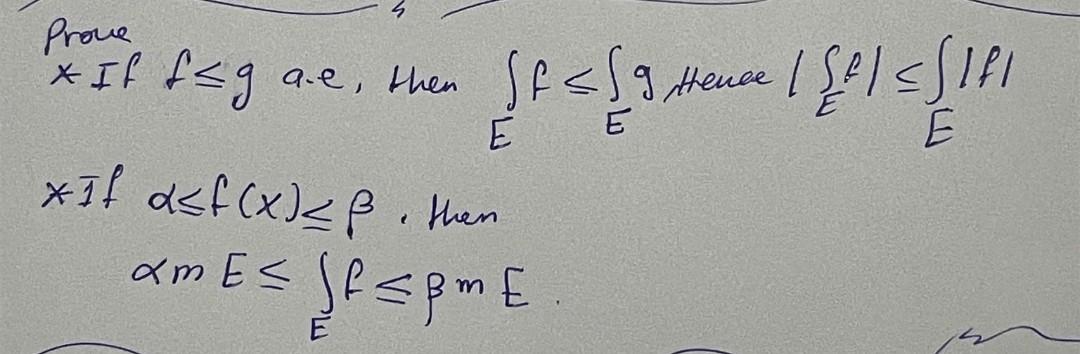 Prove
* If f≤g a.e, then ∫_E f ≤ ∫_E g Hence |∫_E f| ≤ ∫_E |f|
* If α≤f(x)≤β . then
αm E ≤ ∫_E f ≤ βm E .